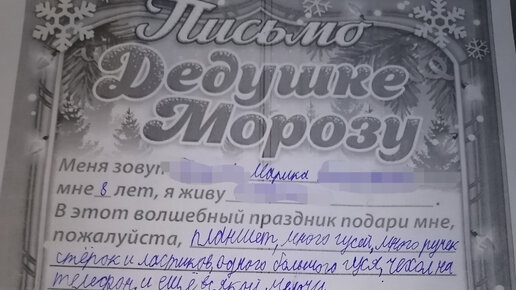 Письмо
Дедушке
Морозу
Меня зовут Марика
мне 8 лет, я живу
В этот волшебный праздник подари мне,
пожалуйста, планшет, много гусей, много ручек
стёрок и ластиков, одного большого гуся, чехол на
телефон, и ещё всякой мелочи